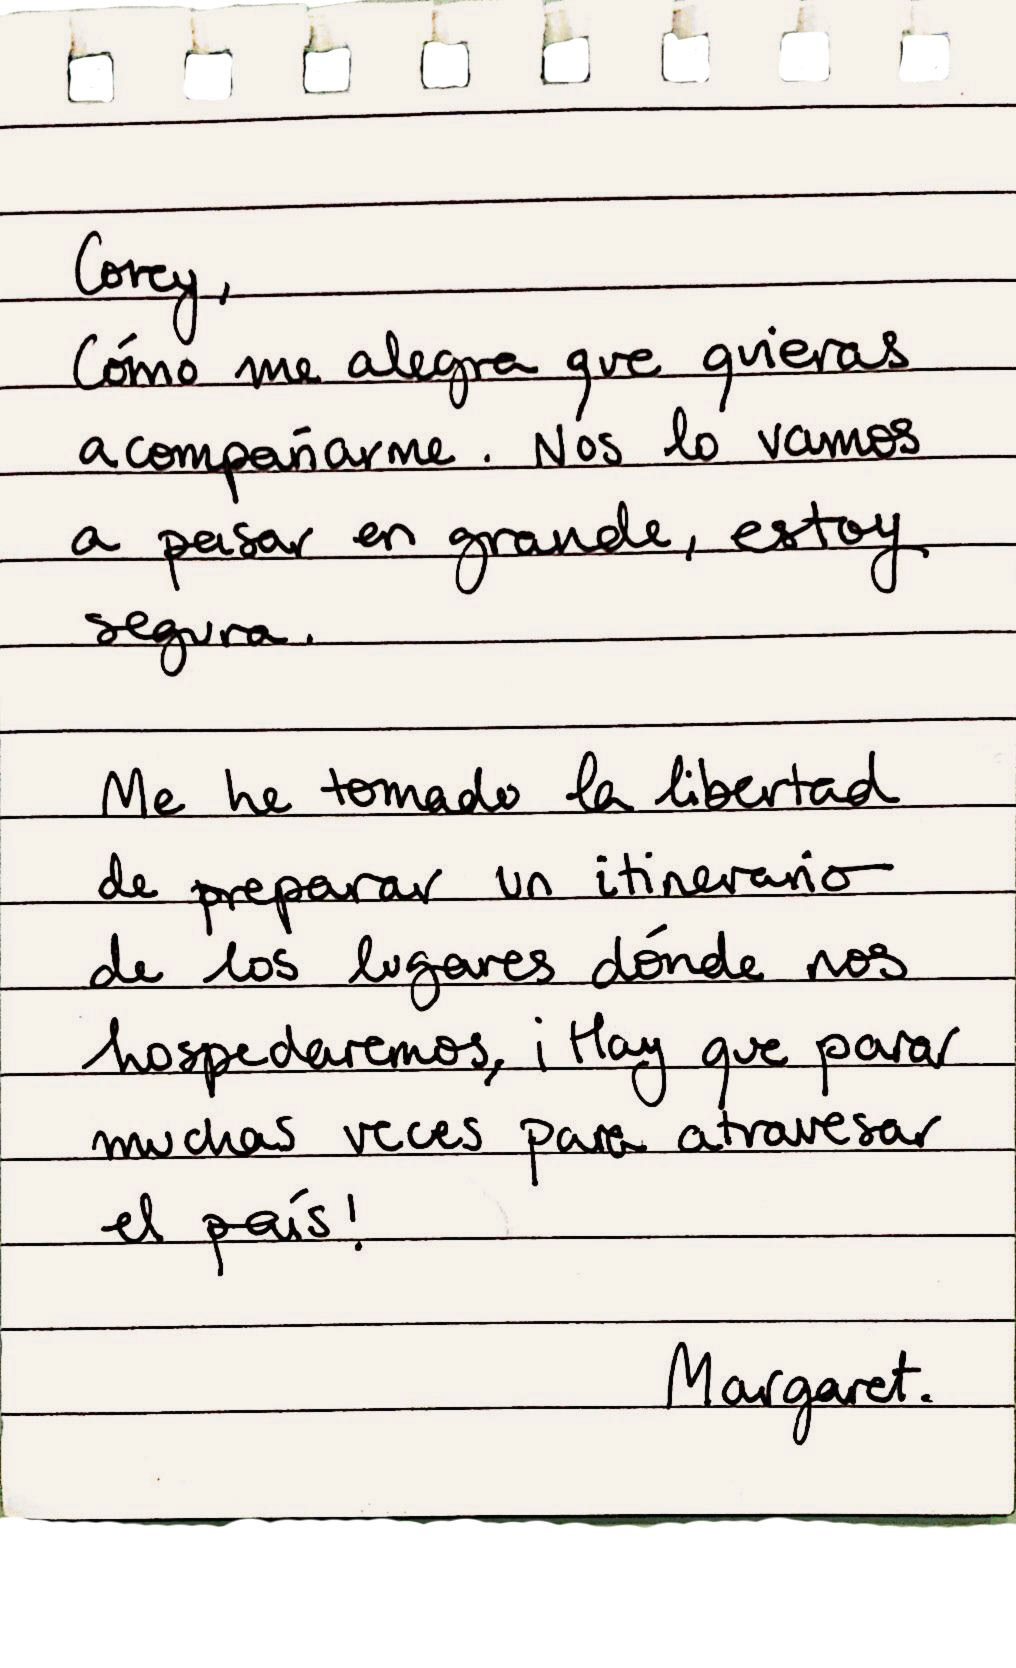 Corey,
Cómo me alegra que quieras
acompañarme. Nos lo vamos
a pasar en grande, estoy
segura.
Me he tomado la libertad
de preparar un itinerario
de los lugares dónde nos
hospedaremos, ¡Hay que parar
muchas veces para atravesar
el país!
Margaret.